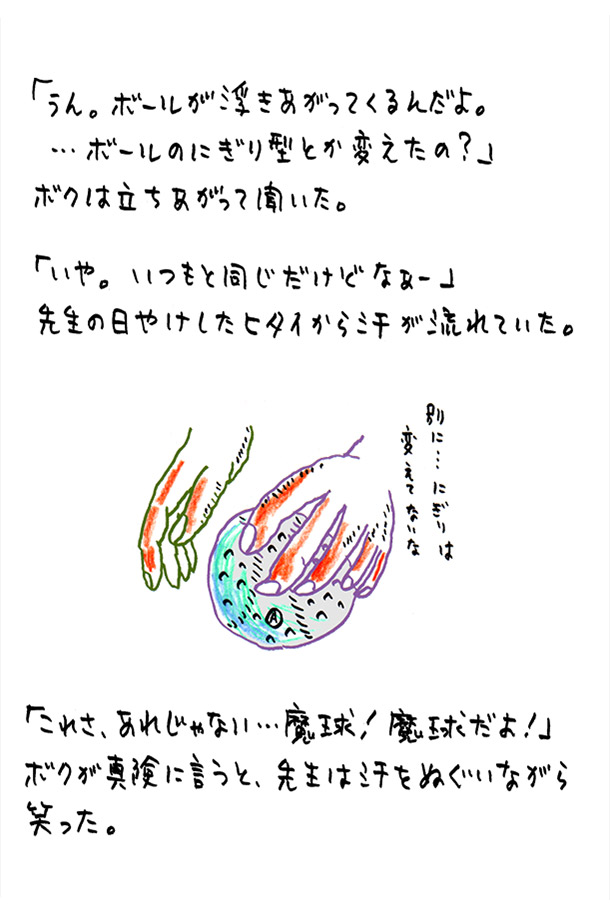 「うん。ボールが浮きあがってくるんだよ。
…ボールのにぎり型とか変えたの？」
ボクは立ちあがって聞いた。
「いや。いつもと同じだけどなぁー」
先生の日やけしたヒタイから汗が流れていた。
別に…にぎりは
変えてないな
A
「これさ、あれじゃない…魔球！魔球だよ！」
ボクが真険に言うと、先生は汗をぬぐいながら
笑った。